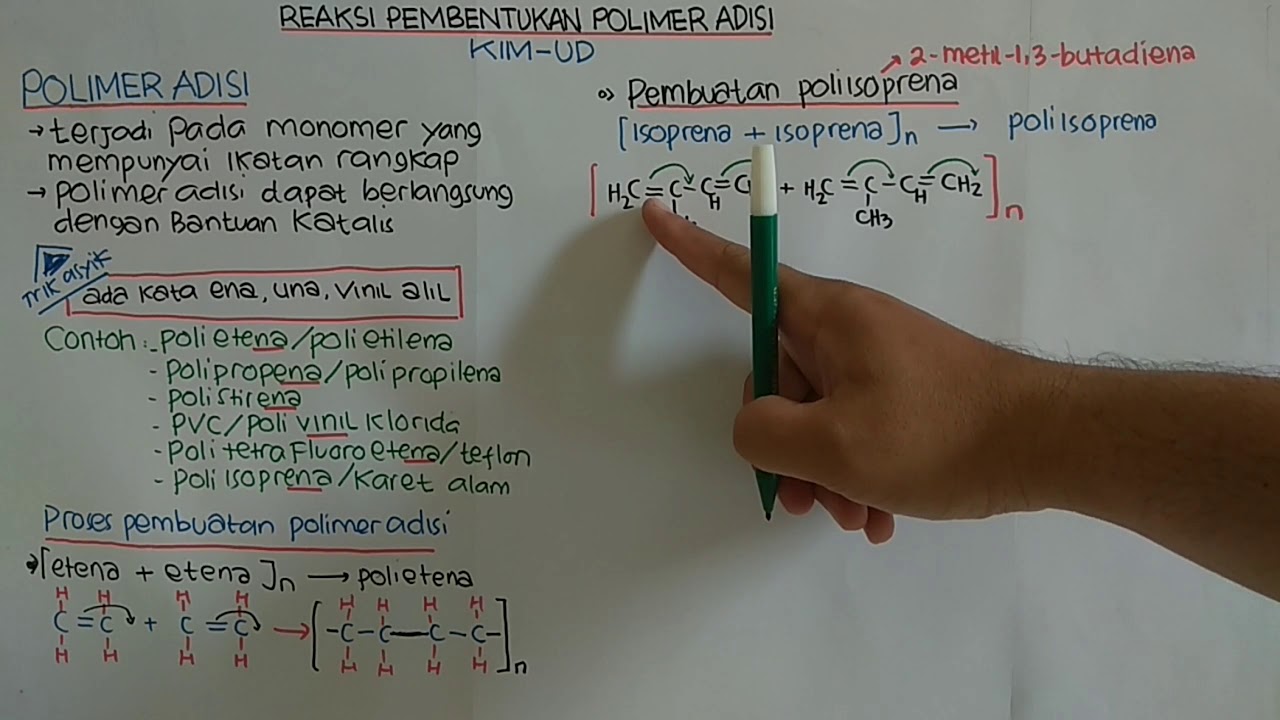 REAKSI PEMBENTUKAN POLIMER ADISI
KIM-UD
POLIMER ADISI
→ terjadi pada monomer yang
mempunyai ikatan rangkap
→ polimer adisi dapat berlangsung
dengan Bantuan Katalis
Trik asyik
ada kata ena, una, vinil alil
Contoh :- polietena/polietilena
- polipropena/polipropilena
- polistirena
- PVC/Poli vinil klorida
- Poli tetra Fluoro etena/teflon
- poli isoprena/karet alam
Proses pembuatan polimer adisi
[etena + etena]n → polietena
H H H H H H H H
C = C + C = C → [-C-C-C-C-]n
H H H H H H H H
2-metil-1,3-butadiena
Pembuatan poliisoprena
[isoprena + isoprena]n → poliisoprena
[H2C=C-C=C + H2C=C-C=CH2]n
H H
CH3